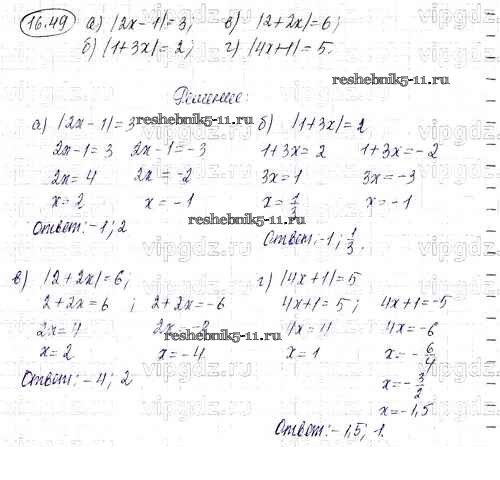 16.49 а) |2x-1|=3; в) |2+2x|=6;
б) |1+3x|=2; г) |4x+1|=5.
reshebnik5-11.ru
Решение:
а) |2x-1|=3
2x-1=3 2x-1=-3
2x=4 2x=-2
x=2 x=-1
Ответ: -1; 2
б) |1+3x|=2
1+3x=2 1+3x=-2
3x=1 3x=-3
x=1/3 x=-1
Ответ: -1; 1/3.
reshebnik5-11.ru
reshebnik5-11.ru
в) |2+2x|=6;
2+2x=6; 2+2x=-6
2x=4 2x=-8
x=2 x=-4
Ответ: -4; 2
reshebnik5-11.ru
г) |4x+1|=5
4x+1=5; 4x+1=-5
4x=4 4x=-6
x=1 x=-6/4
x=-3/2
x=-1,5
Ответ: -1,5; 1.
reshebnik5-11.ru
vipgdz.ru